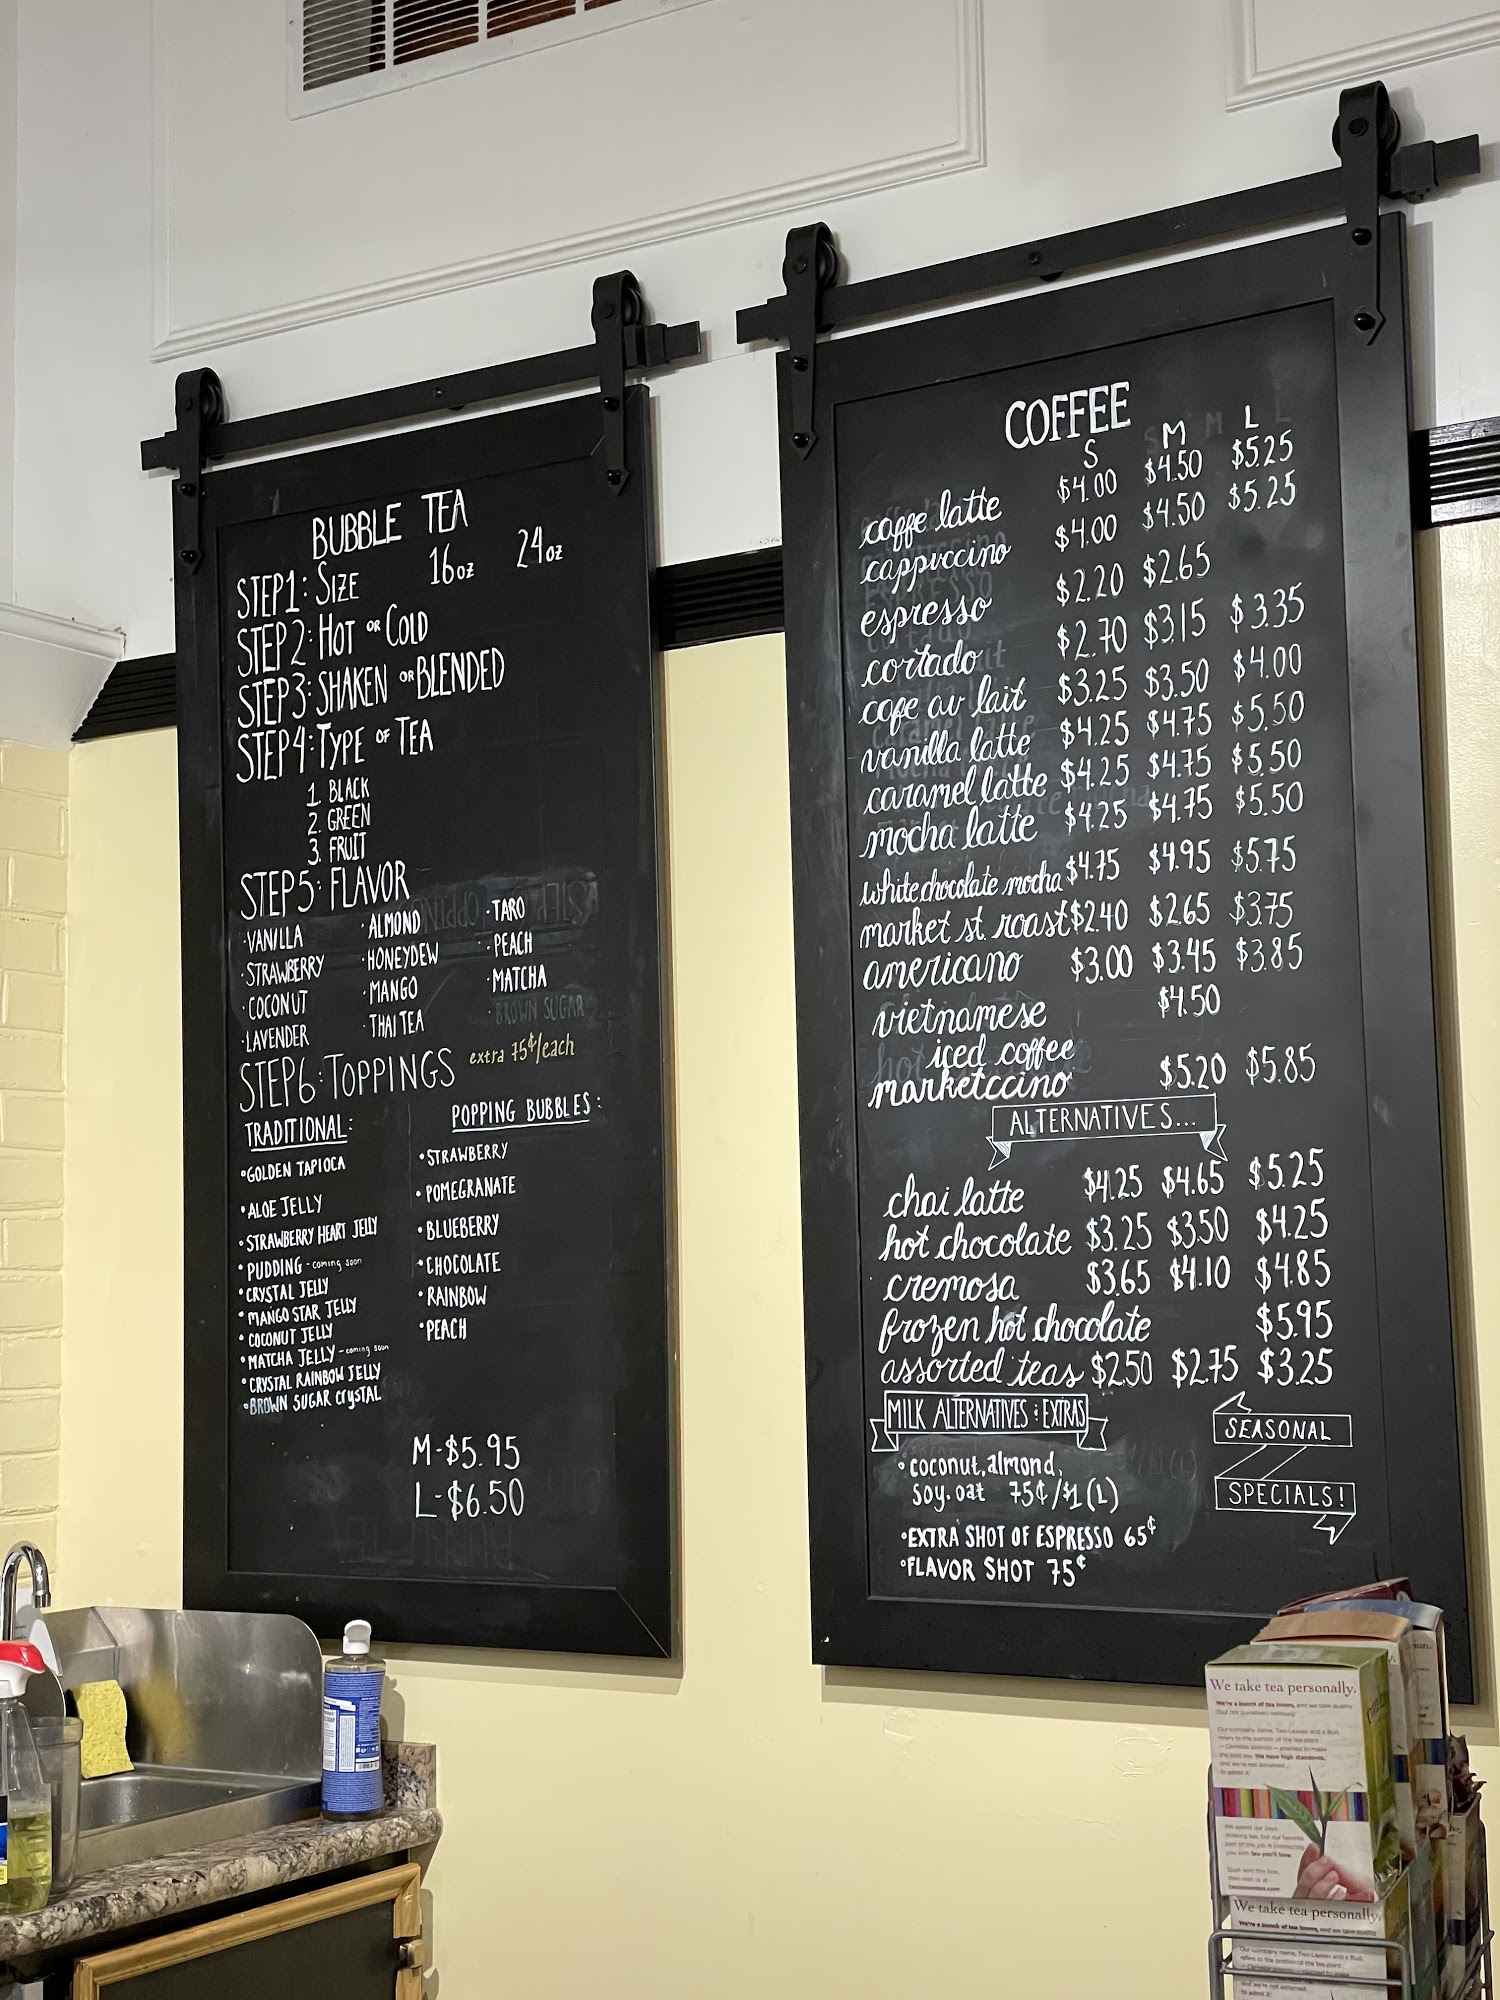 BUBBLE TEA
STEP1: SIZE 16oz 24oz
STEP2: HOT OR COLD
STEP3: SHAKEN OR BLENDED
STEP4: TYPE OF TEA
1. BLACK
2. GREEN
3. FRUIT
STEP5: FLAVOR
·VANILLA ·ALMOND ·TARO
·STRAWBERRY ·HONEYDEW ·PEACH
·COCONUT ·MANGO ·MATCHA
·LAVENDER ·THAI TEA ·BROWN SUGAR
STEP6: TOPPINGS extra 75¢/each
TRADITIONAL:
•GOLDEN TAPIOCA
•ALOE JELLY
•STRAWBERRY HEART JELLY
•PUDDING - coming soon
•CRYSTAL JELLY
•MANGO STAR JELLY
•COCONUT JELLY
•MATCHA JELLY - coming soon
•CRYSTAL RAINBOW JELLY
•BROWN SUGAR CRYSTAL
POPPING BUBBLES:
•STRAWBERRY
•POMEGRANATE
•BLUEBERRY
•CHOCOLATE
•RAINBOW
•PEACH
M-$5.95
L-$6.50
COFFEE
S M L
caffe latte $4.00 $4.50 $5.25
cappuccino $4.00 $4.50 $5.25
espresso $2.20 $2.65
cortado $2.70 $3.15 $3.35
cafe au lait $3.25 $3.50 $4.00
vanilla latte $4.25 $4.75 $5.50
caramel latte $4.25 $4.75 $5.50
mocha latte $4.25 $4.75 $5.50
white chocolate mocha $4.75 $4.95 $5.75
market st. roast $2.40 $2.65 $3.75
americano $3.00 $3.45 $3.85
vietnamese $4.50
iced coffee
marketccino $5.20 $5.85
ALTERNATIVES...
chai latte $4.25 $4.65 $5.25
hot chocolate $3.25 $3.50 $4.25
cremosa $3.65 $4.10 $4.85
frozen hot chocolate $5.95
assorted teas $2.50 $2.75 $3.25
MILK ALTERNATIVES & EXTRAS
•coconut, almond,
soy, oat 75¢/$1 (L)
•EXTRA SHOT OF ESPRESSO 65¢
•FLAVOR SHOT 75¢
SEASONAL
SPECIALS!
We take tea personally.
We're a bunch of tea lovers, and we take quality
(but not ourselves) seriously.
We take tea personally.
We're a bunch of tea lovers, and we take quality